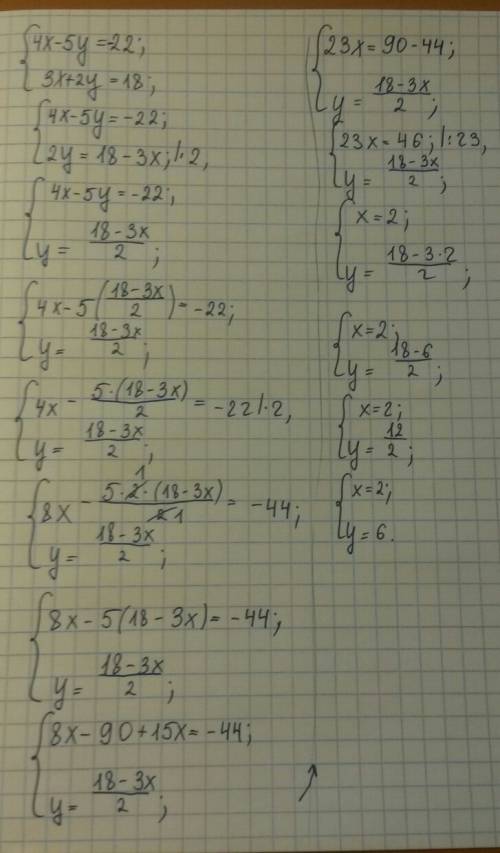 4x-5y=-22;
3x+2y=18;
4x-5y=-22;
2y=18-3x; |:2,
4x-5y=-22;
y= (18-3x)/2;
4x-5((18-3x)/2)=-22;
y= (18-3x)/2;
4x - 5·(18-3x)/2 = -22 |·2,
y= (18-3x)/2;
8x - 5·2·(18-3x)/2 = -44;
1
1
y= (18-3x)/2;
8x-5(18-3x)=-44;
y= (18-3x)/2;
8x-90+15x=-44;
y= (18-3x)/2;
23x=90-44;
y= (18-3x)/2;
23x=46; |:23,
y= (18-3x)/2;
x=2;
y= (18-3·2)/2;
x=2;
y= (18-6)/2;
x=2;
y= 12/2;
x=2;
y=6.